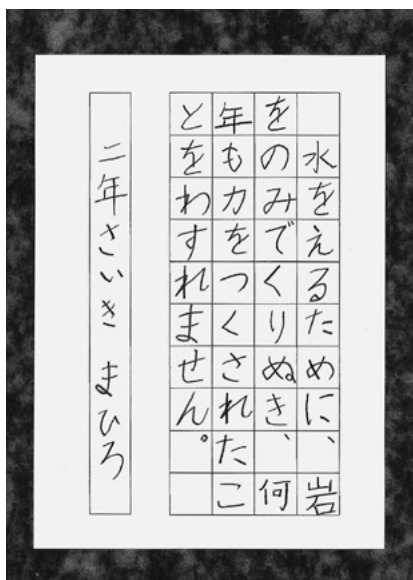 水をえるために、岩
をのみでくりぬき、何
年も力をつくされたこ
とをわすれません。
二年さいき まひろ